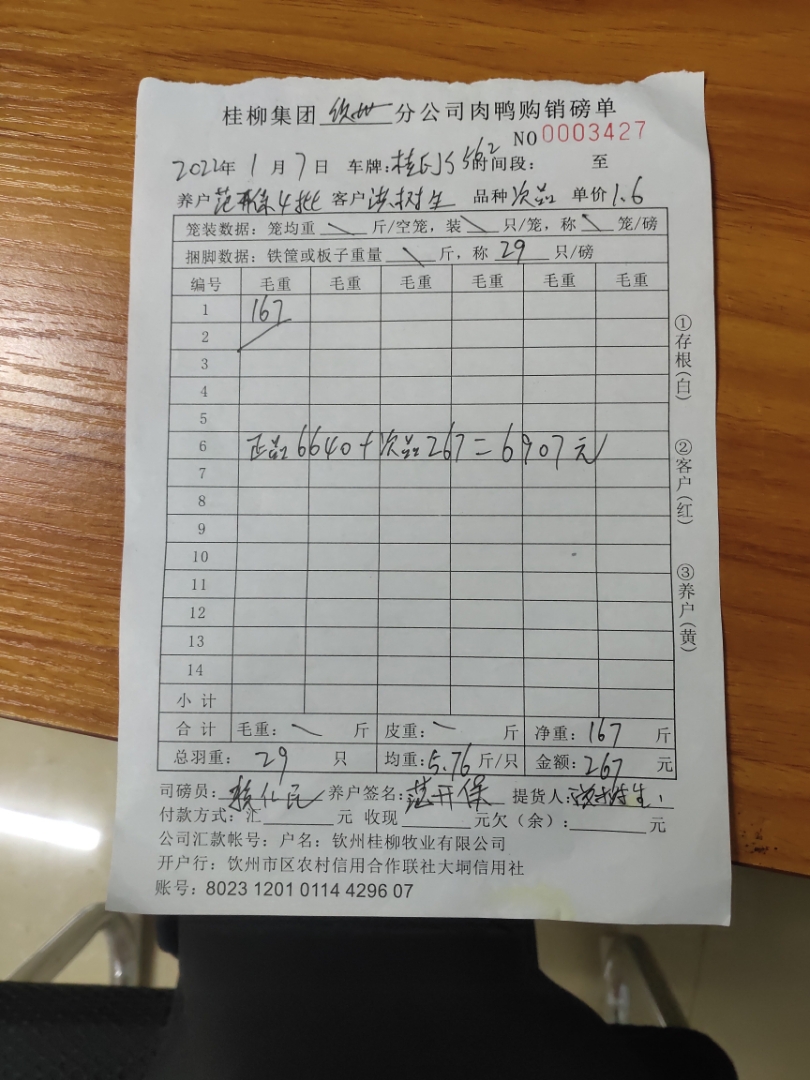 桂柳集团 钦州 分公司肉鸭购销磅单
NO 0003427
2022年 1 月 7 日 车牌: 时间段: 至
养户 范开保4批 客户 洪树生 品种 次品 单价 1.6
笼装数据: 笼均重 \ 斤/空笼, 装 \ 只/笼, 称 \ 笼/磅
捆脚数据: 铁筐或板子重量 \ 斤, 称 29 只/磅
编号 毛重 毛重 毛重 毛重 毛重 毛重
1 167
2
3
4
5
6 正品6640+次品267=6907元
7
8
9
10
11
12
13
14
小 计
合 计 毛重: \ 斤 皮重: \ 斤 净重: 167 斤
总羽重: 29 只 均重: 5.76 斤/只 金额: 267 元
司磅员: 养户签名: 范开保 提货人:
付款方式: 汇 元 收现 元欠(余): 元
公司汇款帐号: 户名: 钦州桂柳牧业有限公司
开户行: 饮州市区农村信用合作联社大垌信用社
账号: 8023 1201 0114 4296 07
①存根(白)
②客户(红)
③养户(黄)